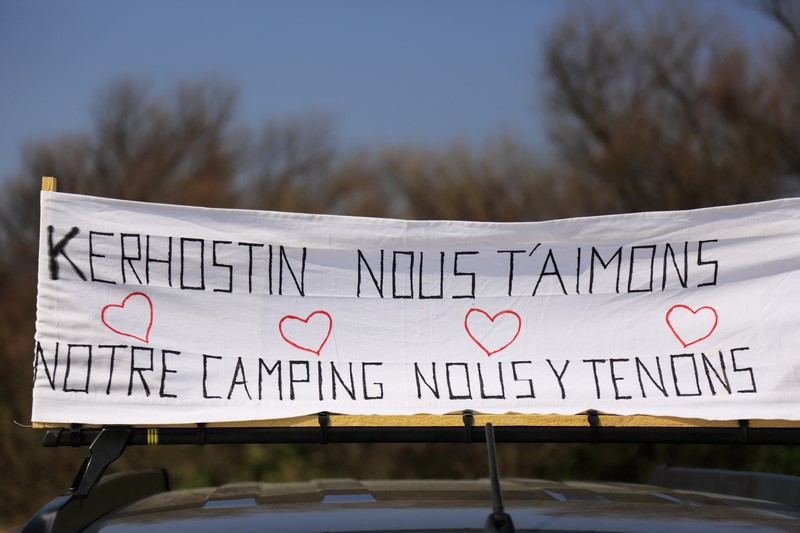 KERHOSTIN NOUS T'AIMONS
NOTRE CAMPING NOUS Y TENONS